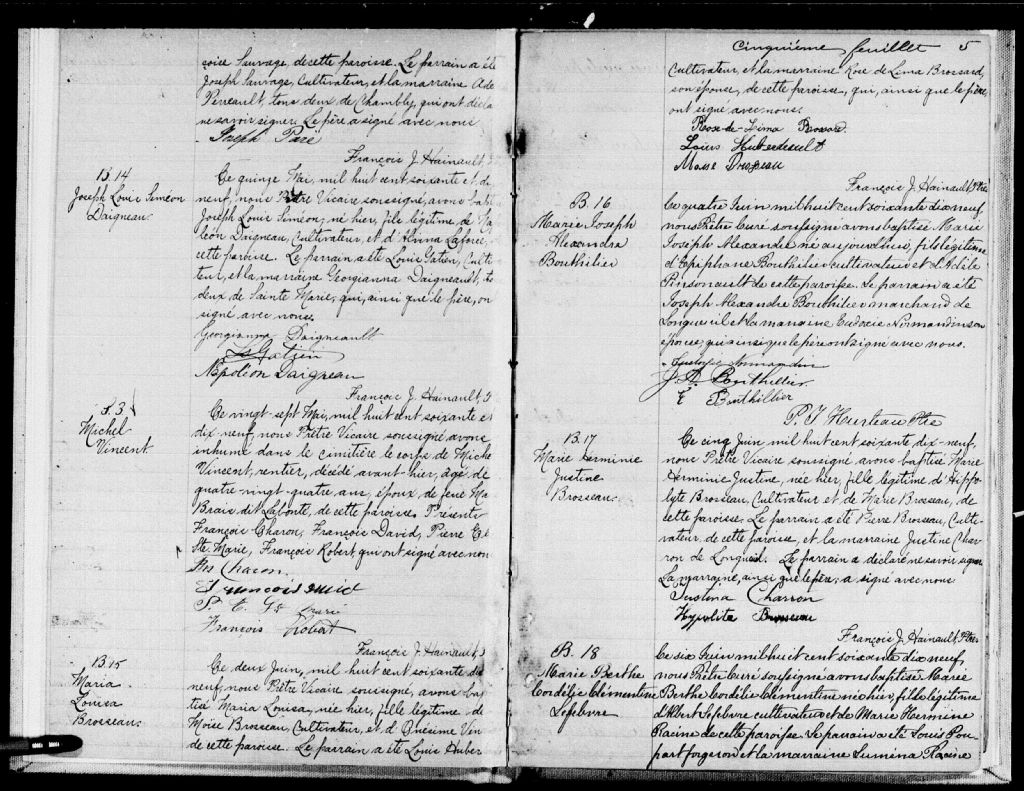 çoise Sauvage, de cette paroisse. Le parrain a été
Joseph Sauvage, Cultivateur, et la marraine Ade
Perreault, tous deux de Chambly, qui ont décla
ne savoir signer. Le père a signé avec nous
Joseph Paré
François J. Hainault,
B. 14
Joseph Louis Siméon
Daigneau.
Ce quinze Mai, mil huit cent soixante et di
neuf, nous Prêtre Vicaire soussigné, avons bapt
Joseph Louis Siméon, né hier, fils légitime de Na
léon Daigneau, Cultivateur, et d'Alvina Laforce,
cette paroisse. Le parrain a été Louis Gatien, Culti
teur, et la marraine Georgianna Daigneault, to
deux de Sainte Marie, qui, ainsi que le père, on
signé avec nous.
Georgianna Daigneault
Ls Gatien
Napoléon Daigneau
François J. Hainault,
S. 3
Michel
Vincent
Ce vingt-sept Mai, mil huit cent soixante et
dix-neuf, nous Prêtre Vicaire soussigné avons
inhumé dans le cimitière le corps de Miche
Vincent, rentier, décédé avant-hier, âgé de
quatre-vingt-quatre ans, époux de feue Ma
Brais dit Laborté, de cette paroisse. Présents
François Charon, François David, Pierre Cé
Ste Marie, François Robert, qui ont signé avec nou
Frs Charon
Francois David
P. C. St Marie
François Robert
François J. Hainault,
B. 15
Maria
Louisa
Brosseau
Ce deux Juin, mil huit cent soixante dix
neuf, nous Prêtre Vicaire soussigné, avons bap
tisé Maria Louisa, née hier, fille légitime de
Moïse Brosseau, Cultivateur, et d'Onésime Vin
de cette paroisse. Le parrain a été Louis Huber
Cinquième feuillet 5
Cultivateur, et la marraine Rose de Lima Brossard,
son épouse, de cette paroisse, qui, ainsi que le père,
ont signé avec nous.
Rose-de-Lima Brossard
Louis Huberdeault
Moise Brosseau
François J. Hainault, Ptre
B. 16
Marie Joseph
Alexandre
Bouthilier
Ce quatre Juin mil huit cent soixante dix neuf,
nous Prêtre Curé soussigné avons baptisé Marie
Joseph Alexandre né aujourd'hui, fils légitime
d'Epiphane Bouthilier cultivateur et d'Adèle
Pinsonault de cette paroisse. Le parrain a été
Joseph Alexandre Bouthilier marchand de
Longueuil et la marraine Eudoxie Normandin son
épouse, qui ainsi que le père ont signé avec nous.
Normandin
J. A. Bouthillier
E Bouthillier
P. J. Hurteau Ptre
B. 17
Marie Herminie
Justine
Brosseau.
Ce cinq Juin mil huit cent soixante dix-neuf,
nous Prêtre Vicaire soussigné avons baptisé Marie
Herminie Justine, née hier, fille légitime d'Hippo-
lyte Brosseau, Cultivateur et de Marie Brosseau, de
cette paroisse. Le parrain a été Pierre Brosseau, Culti-
vateur, de cette paroisse, et la marraine Justine Char-
ron de Longueuil. Le parrain a déclaré ne savoir signer.
La marraine, ainsi que le père, a signé avec nous
Justina Charron
Hypolite Brosseau
François J. Hainault, Ptre
B. 18
Marie Berthe
Cordélie Clémentine
Lefebvre
Ce six Juin mil huit cent soixante dix neuf,
nous Prêtre Curé soussigné avons baptisé Marie
Berthe Cordélie Clémentine née hier, fille légitime
d'Albert Lefebvre cultivateur et de Marie Hermine
Racine de cette paroisse. Le parrain a été Louis Pou-
part forgeron et la marraine Lumena Racine